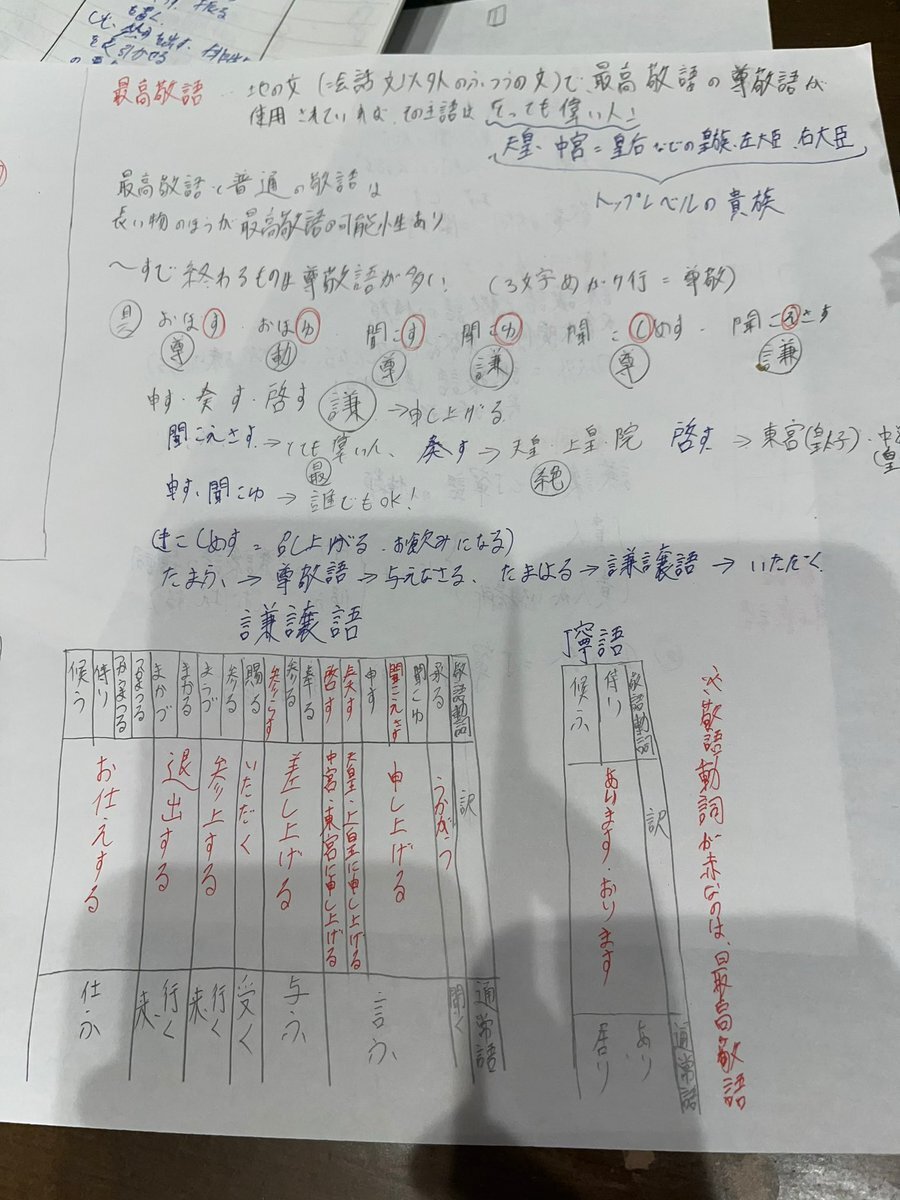 最高敬語
地の文(会話文以外のふつうの文)で最高敬語の尊敬語が
使用されていれば、その主語はとっても偉い人!
天皇・中宮=皇后などの皇族、左大臣、右大臣
トップレベルの貴族
最高敬語と普通の敬語は
長い物のほうが最高敬語の可能性あり
〜すで終わるものは尊敬語が多い!
おほす・おほゆ 聞こす 聞こゆ 聞こしめす・聞こえさす
尊 動 尊 謙 尊 謙
申す・奏す・啓す 謙 →申し上げる
聞こえさす→とても偉い人、奏す→天皇・上皇・院 啓す→東宮(皇太子)・中
最 絶
申す、聞こゆ→誰でもOK!
(きこしめす=召し上がる・お飲みになる)
たまふ、→尊敬語→与えなさる、たまはる→謙譲語→いただく
謙譲語
敬語動詞 訳 通常語
承る うかがう 聞く
聞こゆ 聞こえさす 申す 申し上げる 言ふ
奏す 天皇・上皇に申し上げる
啓す 中宮・東宮に申し上げる
奉る 参る 参らす 差し上げる 与ふ
賜る いただく 受く
参る まうづ 参上する 行く 来
まかる まかづ 退出する 行く 来
侍り 候う お仕えする 仕ふ
丁寧語
敬語動詞 訳 通常語
侍り 候ふ あります・おります あり 居り
敬語動詞が赤なのは、最高敬語